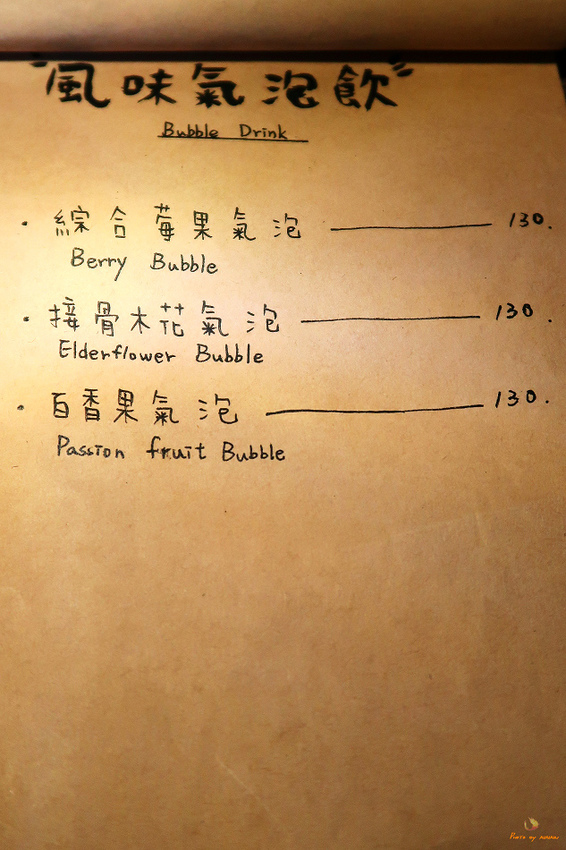 "風味氣泡飲"
Bubble Drink
· 綜合莓果氣泡 130.
Berry Bubble
· 接骨木花氣泡 130.
Elderflower Bubble
· 百香果氣泡 130.
Passion fruit Bubble